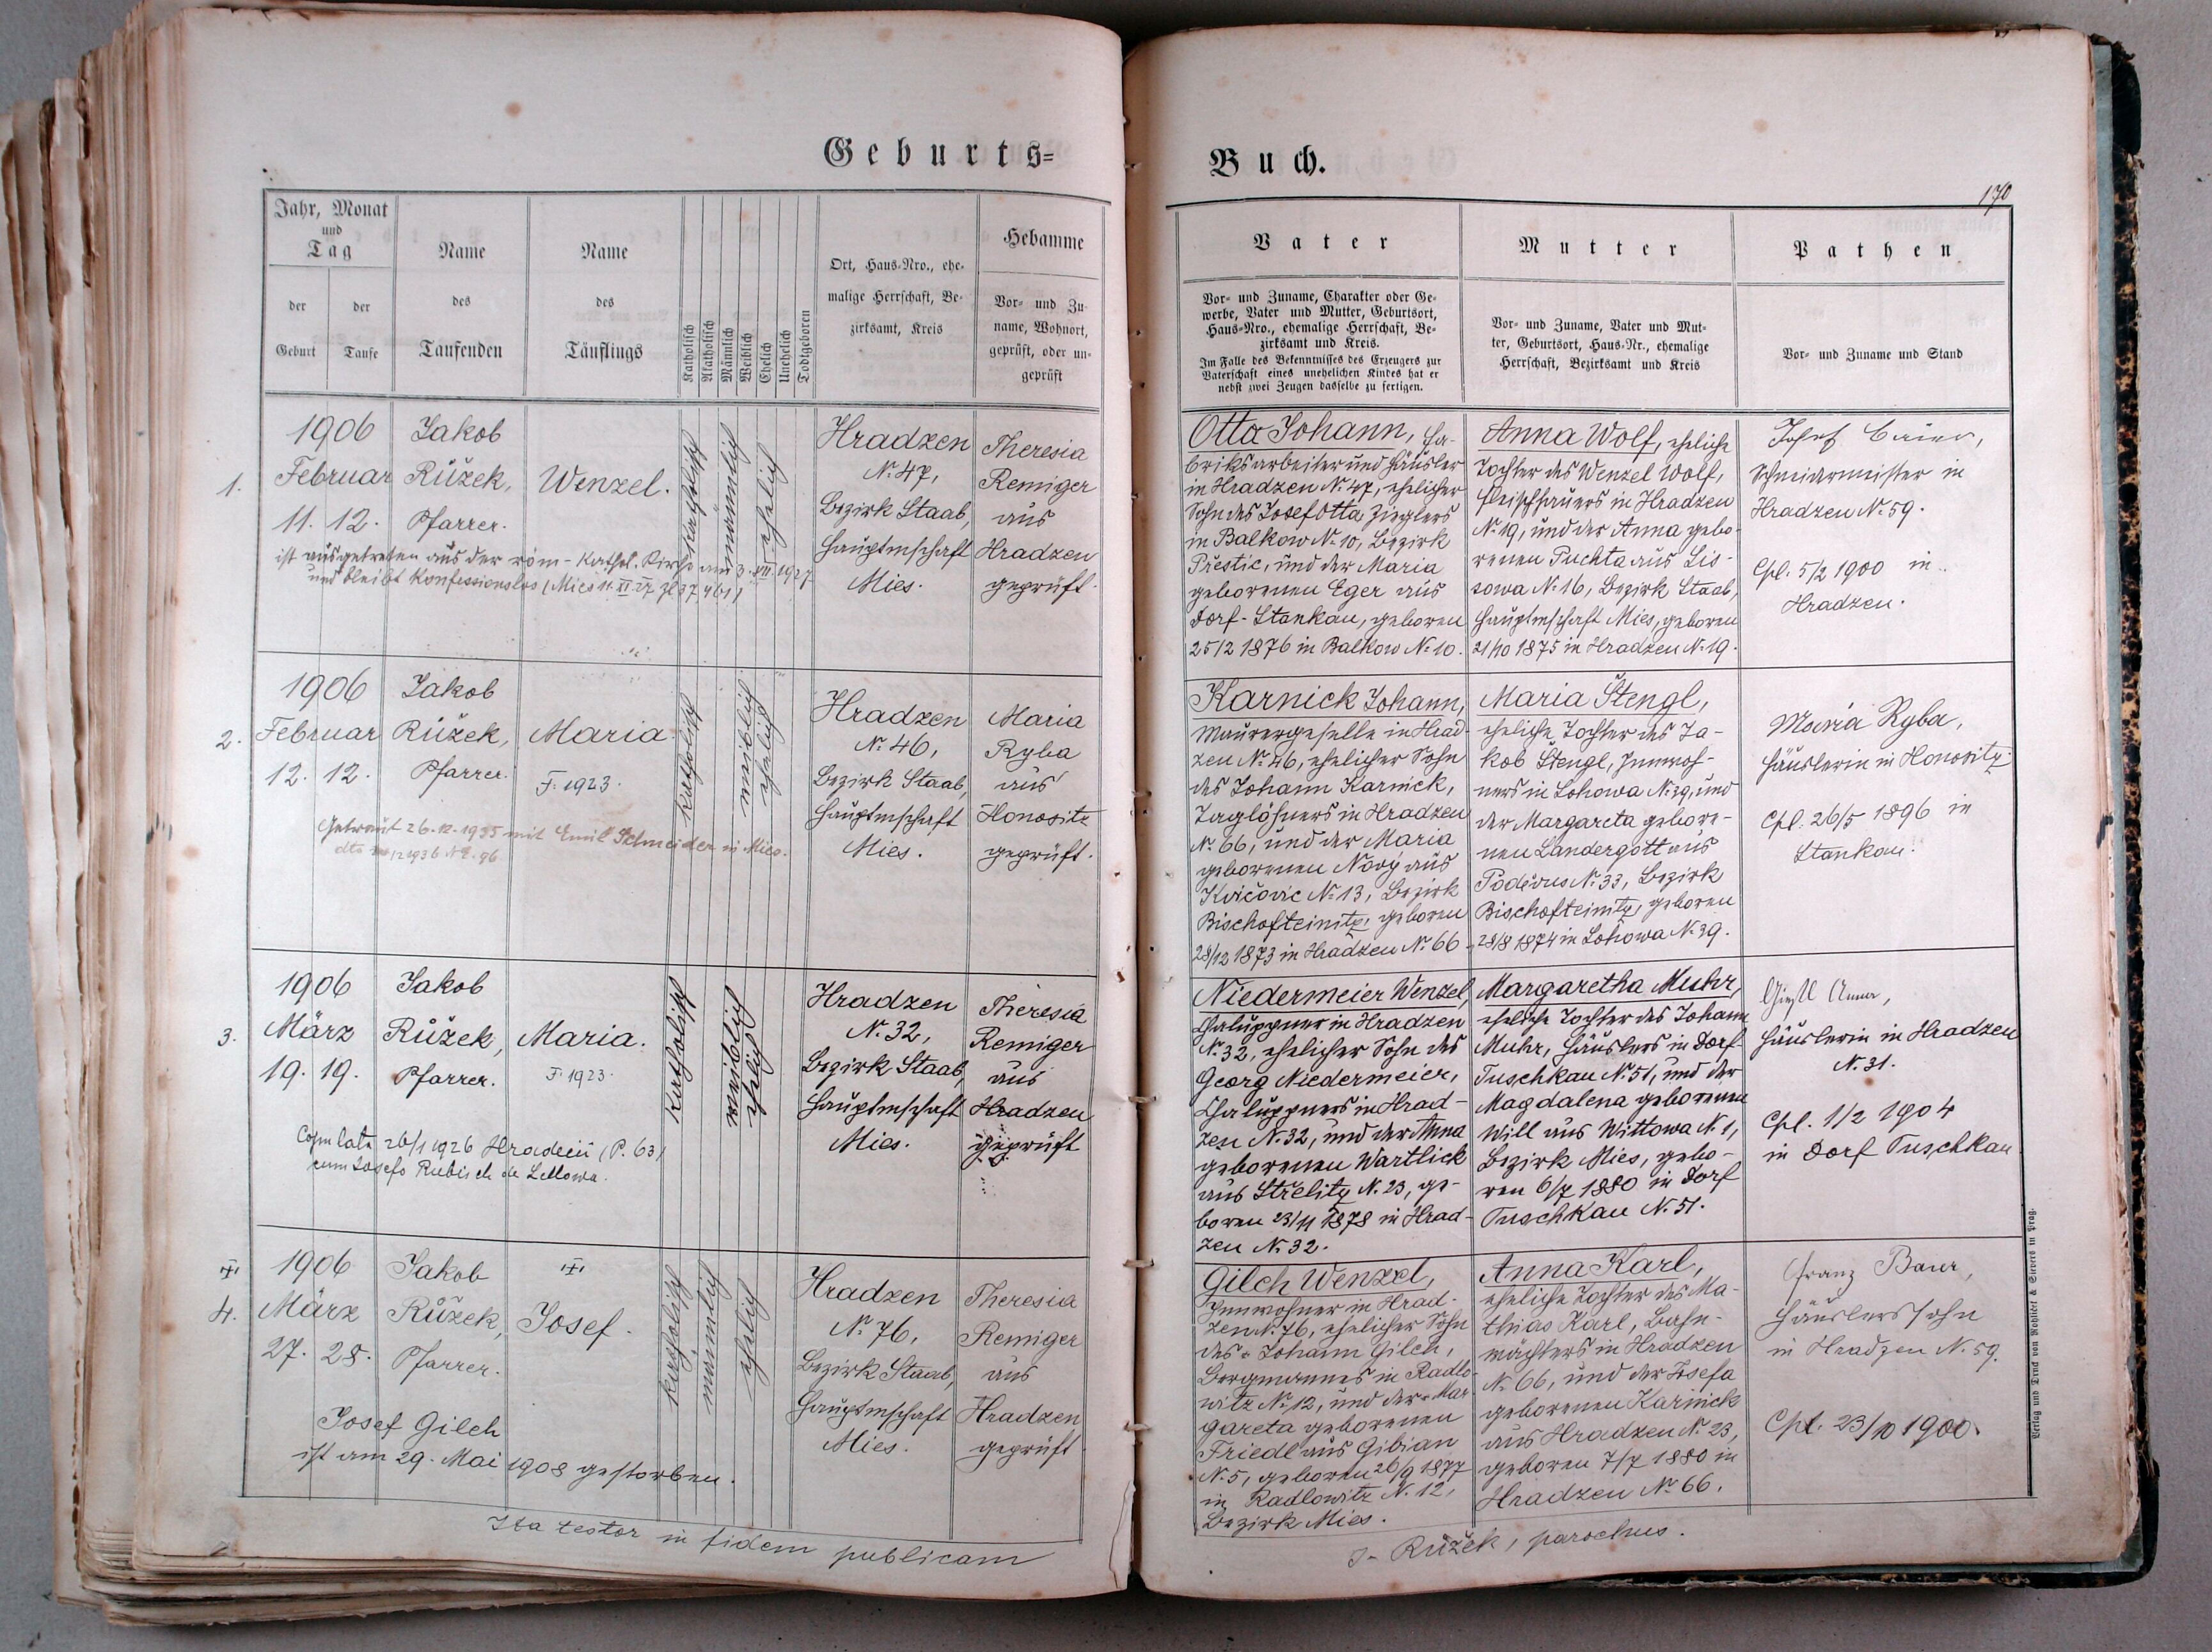 Geburts=
Jahr, Monat
und
Tag
der
Geburt
der
Taufe
Name
des
Taufenden
Name
des
Täuflings
Katholisch
Akatholisch
Männlich
Weiblich
Ehelich
Unehelich
Todtgeboren
Ort, Haus-Nro., ehe-
malige Herrschaft, Be-
zirksamt, Kreis
Hebamme
Vor- und Zu-
name, Wohnort,
geprüft, oder un-
geprüft
1.
1906
Februar
11. 12.
Jakob
Růžek,
Pfarrer.
Wenzel.
katholisch
männlich
ehelich
Hradzen
No 47,
Bezirk Staab,
Hauptmschaft
Mies.
Theresia
Remiger
aus
Hradzen
geprüft.
ist ausgetreten aus der röm-kathol. Kirche am 3. XII. 1927
und bleibt Konfessionslos (Mies 11. XI. 27 Zl 37.461)
2.
1906
Februar
12. 12.
Jakob
Růžek,
Pfarrer.
Maria
F. 1923.
katholisch
weiblich
ehelich
Hradzen
No 46,
Bezirk Staab,
Hauptmschaft
Mies.
Maria
Ryba
aus
Honositz
geprüft.
Getraut 26.12.1935 mit Emil Schneider in Mies.
3.
1906
März
19. 19.
Jakob
Růžek,
Pfarrer.
Maria.
F. 1923.
katholisch
weiblich
ehelich
Hradzen
No 32,
Bezirk Staab,
Hauptmschaft
Mies.
Theresia
Remiger
aus
Hradzen
geprüft
Copulata 26/1 1926 Hradecii (P. 63)
cum Josefo Rubisch de Lellowa.
4.
1906
März
27. 28.
Jakob
Růžek,
Pfarrer.
Josef.
katholisch
männlich
ehelich
Hradzen
No 76,
Bezirk Staab,
Hauptmschaft
Mies.
Theresia
Remiger
aus
Hradzen
geprüft.
Josef Gilch
ist am 29. Mai 1908 gestorben.
Ita testor in fidem publicam
Buch.
170
Vater
Vor- und Zuname, Charakter oder Ge-
werbe, Vater und Mutter, Geburtsort,
Haus-Nro., ehemalige Herrschaft, Be-
zirksamt und Kreis.
Im Falle des Bekenntnisses des Erzeugers zur
Vaterschaft eines unehelichen Kindes hat er
nebst zwei Zeugen dasselbe zu fertigen.
Mutter
Vor- und Zuname, Vater und Mut-
ter, Geburtsort, Haus-Nr., ehemalige
Herrschaft, Bezirksamt und Kreis
Pathen
Vor- und Zuname und Stand
Otta Johann, Fa-
briksarbeiter und Häusler
in Hradzen No 47, ehelicher
Sohn des Josef Otta Zieglers
in Balkow No 10, Bezirk
Přestic, und der Maria
geborenen Eger aus
Dorf-Stankau, geboren
25/2 1876 in Balkow No 10.
Anna Wolf, eheliche
Tochter des Wenzel Wolf,
Fleischhauers in Hradzen
No 19, und der Anna gebo-
renen Puchta aus Lis-
sowa No 16, Bezirk Staab,
Hauptmschaft Mies, geboren
21/10 1875 in Hradzen No 19.
Josef Baier,
Schneidermeister in
Hradzen No 59.
Cpl. 5/2 1900 in
Hradzen.
Karnick Johann,
Maurergeselle in Hrad-
zen No 46, ehelicher Sohn
des Johann Karnick,
Taglöhners in Hradzen
No 66, und der Maria
geborenen Nový aus
Kvičovic No 13, Bezirk
Bischofteinitz, geboren
28/12 1873 in Hradzen No 66.
Maria Stengl,
eheliche Tochter des Ja-
kob Stengl, Innwoh-
ners in Lohowa No 29, und
der Margareta gebore-
nen Landergott aus
Poděvus No 33, Bezirk
Bischofteinitz, geboren
28/8 1874 in Lohowa No 39.
Maria Ryba,
Häuslerin in Honositz.
Cpl. 26/5 1896 in
Stankau.
Niedermeier Wenzel,
Chaluppner in Hradzen
No 32, ehelicher Sohn des
Georg Niedermeier,
Chaluppners in Hrad-
zen No 32, und der Anna
geborenen Wartlick
aus Strelitz No 23, ge-
boren 23/11 1878 in Hrad-
zen No 32.
Margaretha Muhr,
eheliche Tochter des Johann
Muhr, Häuslers in Dorf-
Tuschkau No 51, und der
Magdalena geborenen
Will aus Wittowa No 1,
Bezirk Mies, gebo-
ren 6/7 1880 in Dorf
Tuschkau No 51.
Anna,
Häuslerin in Hradzen
No 31.
Cpl. 1/2 1904
in Dorf Tuschkau
Gilch Wenzel,
Innwohner in Hrad-
zen No 76, ehelicher Sohn
des Johann Gilch,
Bergmannes in Radlo-
witz No 12, und der Mar-
gareta geborenen
Friedl aus Gibian
No 5, geboren 26/9 1877
in Radlowitz No 12,
Bezirk Mies.
Anna Karl,
eheliche Tochter des Ma-
thias Karl, Bahn-
wächters in Hradzen
No 66, und der Josefa
geborenen Karnick
aus Hradzen No 23,
geboren 7/7 1880 in
Hradzen No 66.
Franz Baier,
Häuslerssohn
in Hradzen No 59.
Cpl. 23/10 1900.
J. Růžek, parochus.
Verlag und Druck von Rohliček & Sievers in Prag.